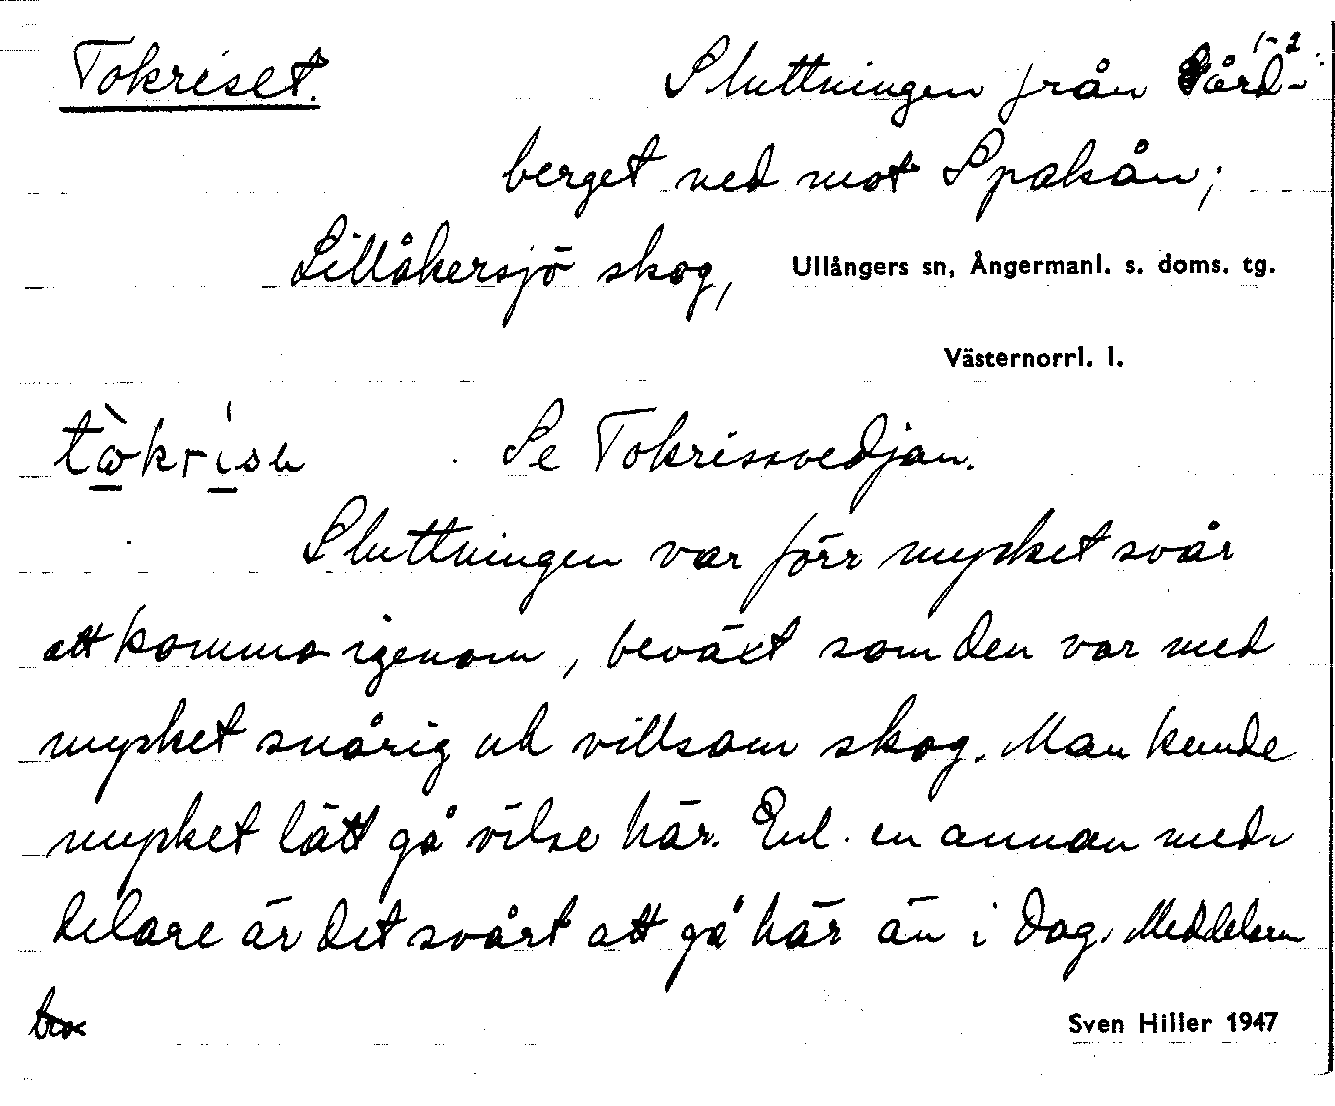 Tokriset. Sluttningen från Gård- 1-2
berget ned mot Spakån;
Lillåkersjö skog, Ullångers sn, Ångermanl. s. doms. tg.
Västernorrl. l.
Se Tokrissvedjan.
Sluttningen var förr mycket svår
att komma igenom, beväxt som den var med
mycket snårig och villsam skog. Man kunde
mycket lätt gå vilse här. Enl. en annan med-
delare är det svårt att gå här än i dag. Meddelaren
Sven Hiller 1947